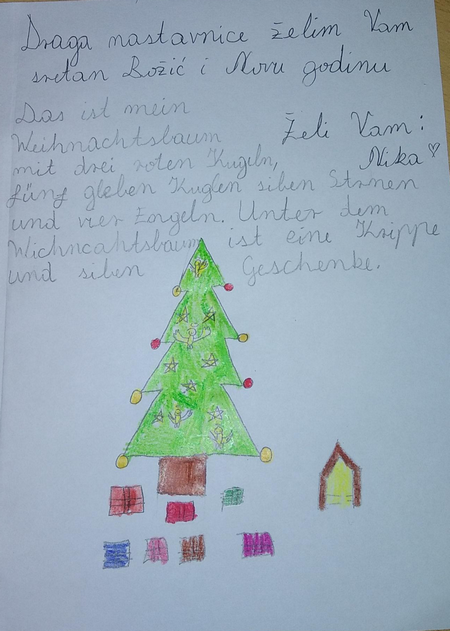 Draga nastavnice želim Vam
sretan Božić i Novu godinu
Das ist mein
Weihnachtsbaum
mit drei roten Kugeln,
fünf gleben Kuglen siben Strnen
und vier Engeln. Unter dem
Wichncahtsbaum ist eine Krippe
und siben Geschenke.
Želi Vam:
Nika♡